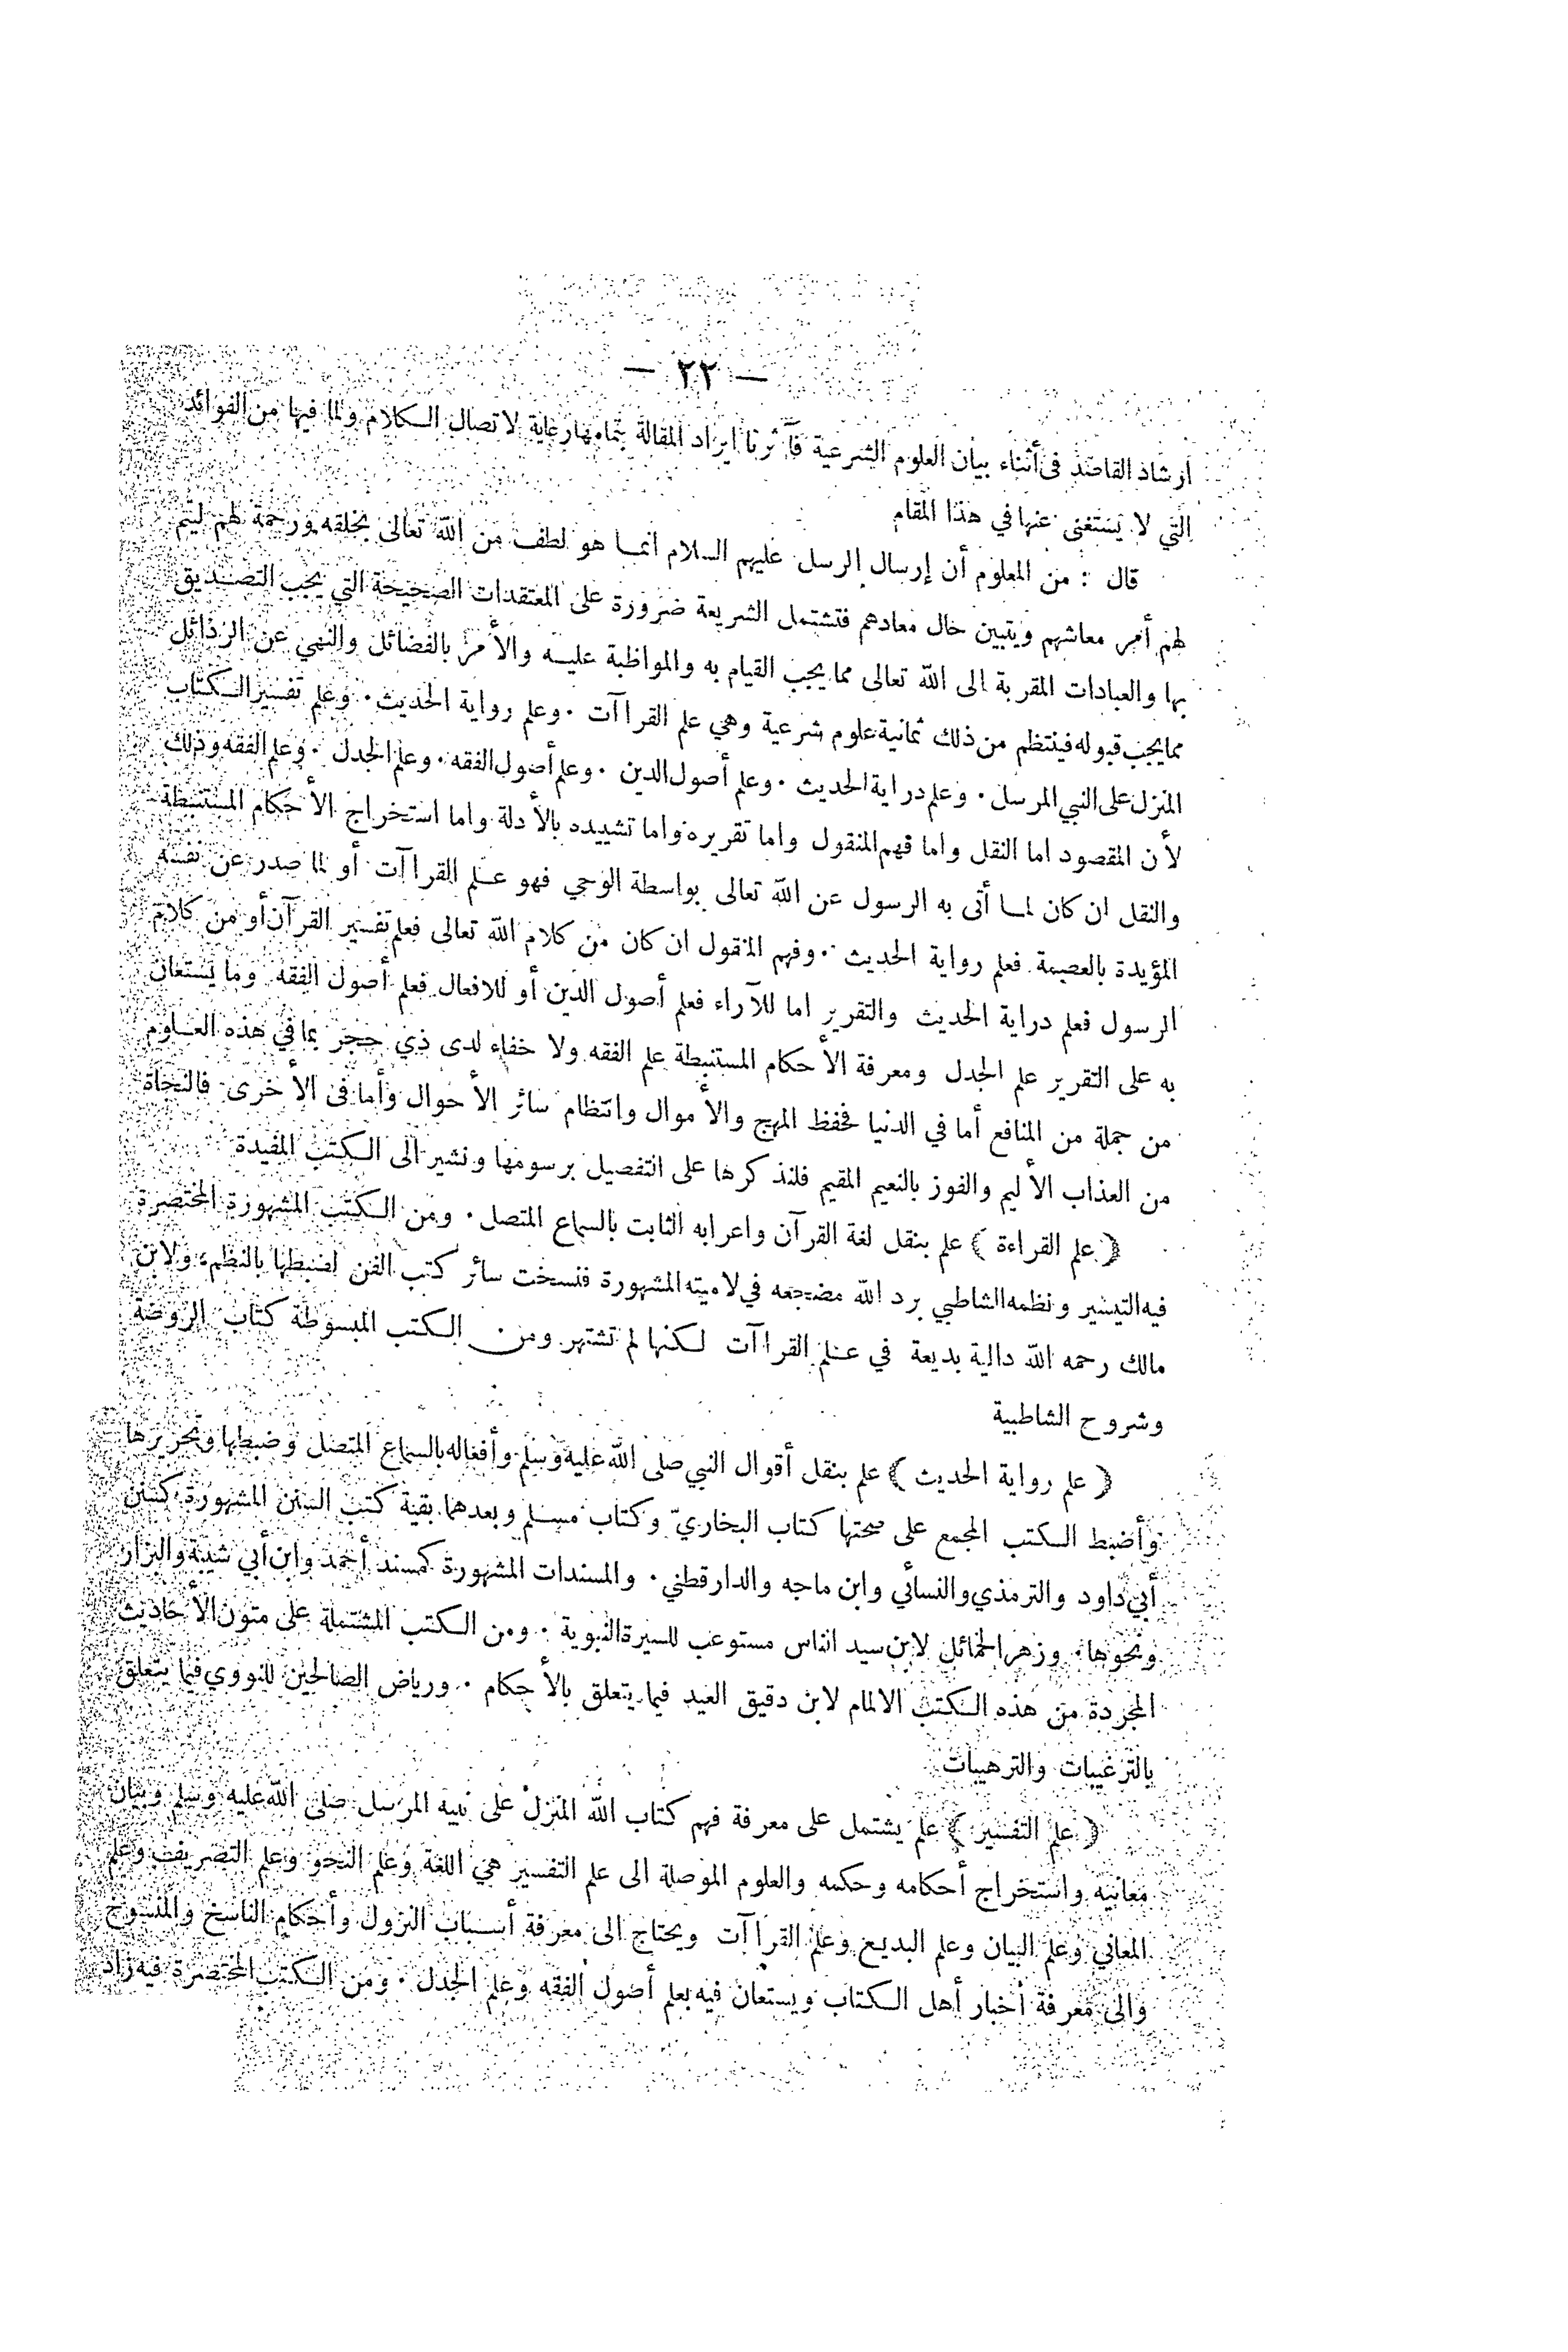 — ٢٢ —
ارشاد القاصد فى أثناء بيان العلوم الشرعية فآثرنا ايراد المقالة بتمامها رعاية لاتصال الكلام ولما فيها من الفوائد
التي لا يستغنى عنها في هذا المقام
قال : من المعلوم أن إرسال الرسل عليهم السلام انما هو لطف من الله تعالى بخلقه ورحمة لهم ليتم
لهم أمر معاشهم ويتبين حال معادهم فتشتمل الشريعة ضرورة على المعتقدات الصحيحة التي يجب التصديق
بها والعبادات المقربة الى الله تعالى مما يجب القيام به والمواظبة عليه والأمر بالفضائل والنهي عن الرذائل
مما يجب قبوله فينتظم من ذلك ثمانية علوم شرعية وهي علم القراآت . وعلم رواية الحديث . وعلم تفسير الكتاب
المنزل على النبي المرسل . وعلم دراية الحديث . وعلم أصول الدين . وعلم أصول الفقه . وعلم الجدل . وعلم الفقه وذلك
لأن المقصود اما النقل واما فهم المنقول واما تقريره واما تشييده بالأدلة واما استخراج الأحكام المستنبطة
والنقل ان كان لما أتى به الرسول عن الله تعالى بواسطة الوحي فهو علم القراآت أو لما صدر عن نفسه
المؤيدة بالعصمة فعلم رواية الحديث . وفهم المنقول ان كان من كلام الله تعالى فعلم تفسير القرآن أو من كلام
الرسول فعلم دراية الحديث والتقرير اما للآراء فعلم أصول الدين أو للافعال فعلم أصول الفقه وما يستعان
به على التقرير علم الجدل ومعرفة الأحكام المستنبطة علم الفقه ولا خفاء لدى ذي حجر بما في هذه العلوم
من جملة من المنافع أما في الدنيا فحفظ المهج والأموال وانتظام سائر الأحوال وأما فى الأخرى فالنجاة
من العذاب الأليم والفوز بالنعيم المقيم فلنذكرها على التفصيل برسومها ونشير الى الكتب المفيدة
﴿ علم القراءة ﴾ علم بنقل لغة القرآن واعرابه الثابت بالسماع المتصل . ومن الكتب المشهورة المختصرة
فيه التيسير ونظمه الشاطبي برد الله مضجعه في لاميته المشهورة فنسخت سائر كتب الفن لضبطها بالنظم ، ولابن
مالك رحمه الله دالية بديعة في علم القراآت لكنها لم تشتهر ومن الكتب المبسوطة كتاب الروضة
وشروح الشاطبية
﴿ علم رواية الحديث ﴾ علم بنقل أقوال النبي صلى الله عليه وسلم وأفعاله بالسماع المتصل وضبطها وتحريرها
وأضبط الكتب المجمع على صحتها كتاب البخاريّ وكتاب مسلم وبعدهما بقية كتب السنن المشهورة كسنن
أبي داود والترمذي والنسائي وابن ماجه والدارقطني . والمسندات المشهورة كمسند أحمد وابن أبي شيبة والبزار
ونحوها . وزهر الخمائل لابن سيد الناس مستوعب للسيرة النبوية . ومن الكتب المشتملة على متون الأحاديث
المجردة من هذه الكتب الالمام لابن دقيق العيد فيما يتعلق بالأحكام . ورياض الصالحين للنووي فيما يتعلق
بالترغيبات والترهيبات
﴿ علم التفسير ﴾ علم يشتمل على معرفة فهم كتاب الله المنزل على نبيه المرسل صلى الله عليه وسلم وبيان
معانيه واستخراج أحكامه وحكمه والعلوم الموصلة الى علم التفسير هي اللغة وعلم النحو وعلم التصريف وعلم
المعاني وعلم البيان وعلم البديع وعلم القراآت ويحتاج الى معرفة أسباب النزول وأحكام الناسخ والمنسوخ
والى معرفة أخبار أهل الكتاب ويستعان فيه بعلم أصول الفقه وعلم الجدل . ومن الكتب المختصرة فيه زاد